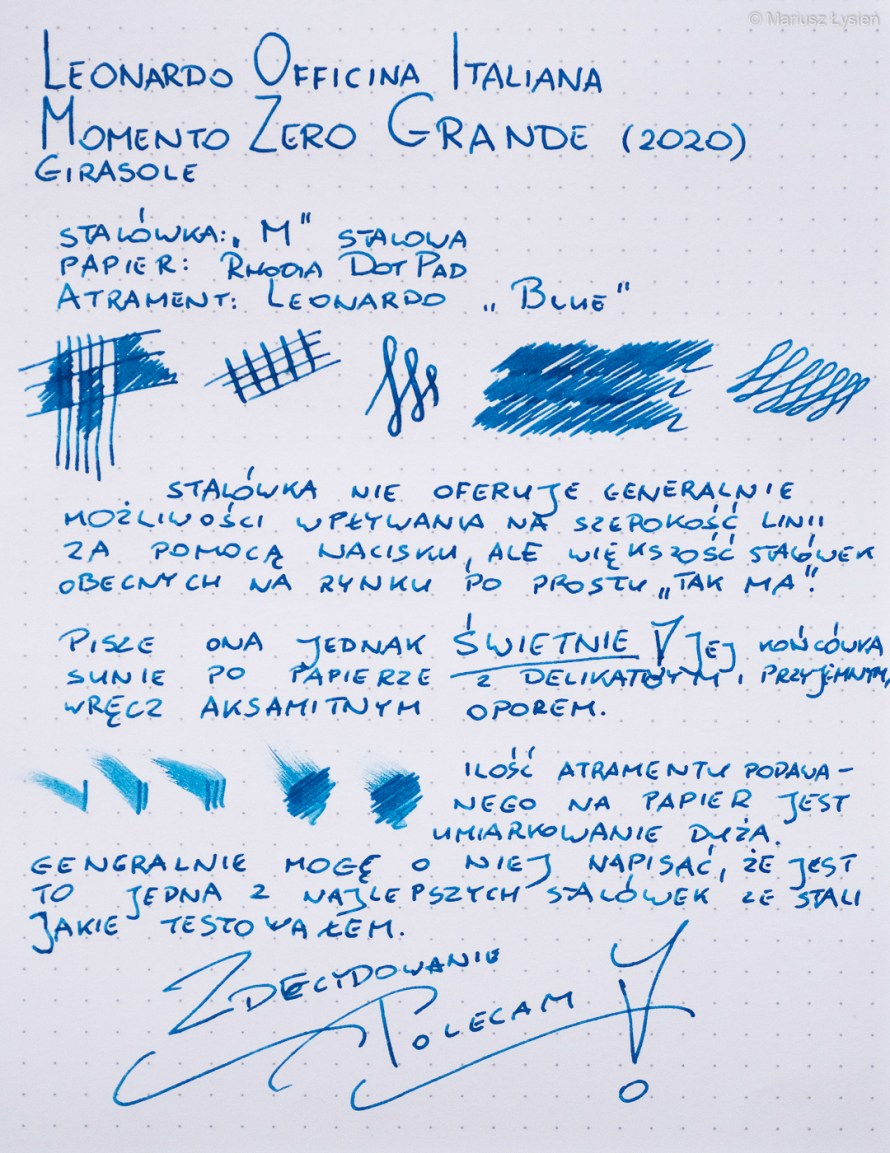 © Mariusz Łysień
Leonardo Officina Italiana
Momento Zero Grande (2020)
Girasole
stalówka: „M" stalowa
papier: Rhodia Dot Pad
Atrament: Leonardo „Blue"
stalówka nie oferuje generalnie
możliwości wpływania na szerokość linii
za pomocą nacisku, ale większość stalówek
obecnych na rynku po prostu „tak ma".
Pisze ona jednak świetnie! Jej końcówka
sunie po papierze z delikatnym i przyjemnym,
wręcz aksamitnym oporem.
Ilość atramentu podawa-
nego na papier jest
umiarkowanie duża.
Generalnie mogę o niej napisać, że jest
to jedna z najlepszych stalówek ze stali
jakie testowałem.
Zdecydowanie
Polecam!